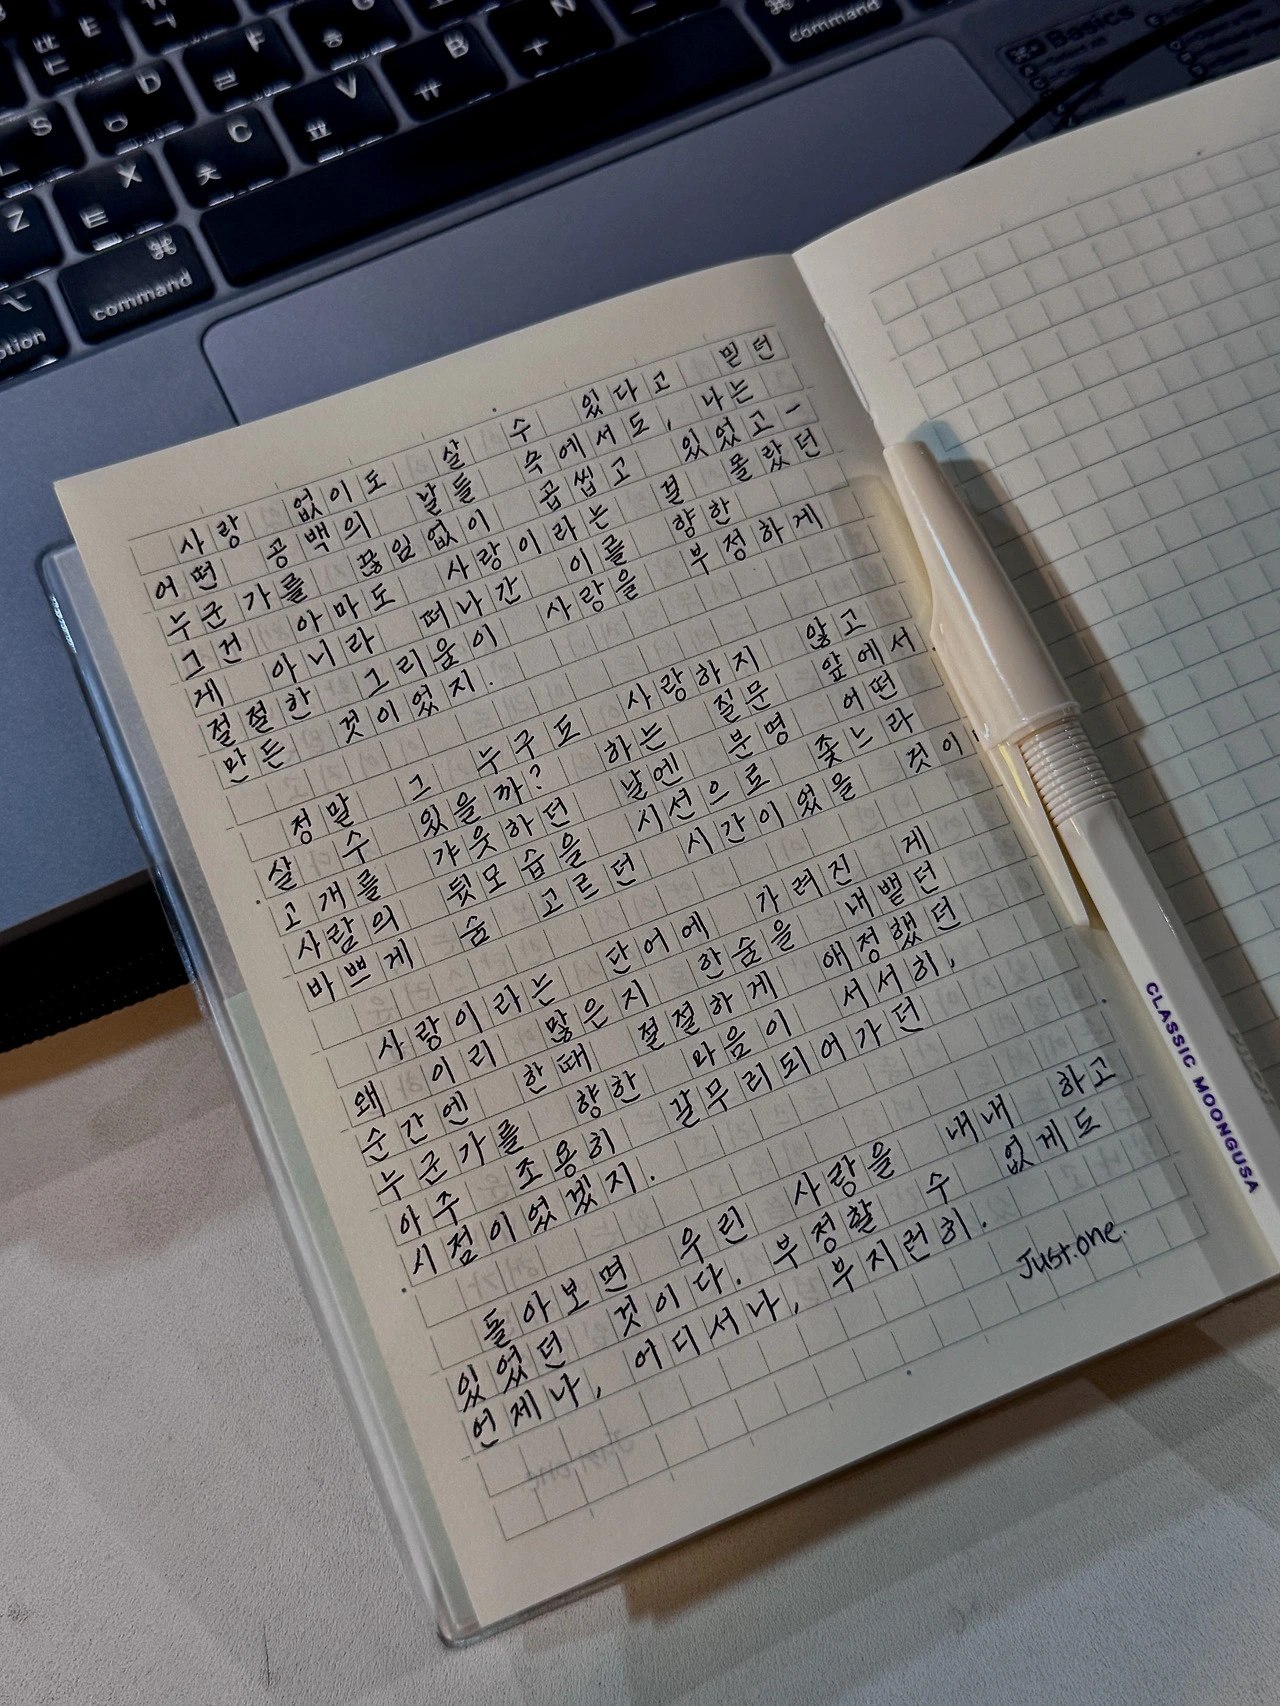 S
D
ㅇ
ㄹ
G
ㅎ
B
ㅠ
N
ㅜ
⌘
command
Z
X
ㅌ
C
ㅊ
V
ㅍ
⌥
option
⌘
command
Basics
사랑 없이도 살 수 있다고 믿던
어떤 공백의 날들 속에서도, 나는
누군가를 끊임없이 곱씹고 있었고-
그건 아마도 사랑이라는 걸 몰랐던
게 아니라 떠나간 이를 향한
절절한 그리움이 사랑을 부정하게
만든 것이었지.
정말 그 누구도 사랑하지 않고
살 수 있을까? 하는 질문 앞에서
고개를 갸웃하던 날엔 분명 어떤
사람의 뒷모습을 시선으로 좇느라
바쁘게 숨 고르던 시간이었을 것이
사랑이라는 단어에 가려진 게
왜 이리 많은지 한숨을 내뱉던
순간엔 한때 절절하게 애정했던
누군가를 향한 마음이 서서히,
아주 조용히 갈무리되어가던
시점이었겠지.
돌아보면 우린 사랑을 내내 하고
있었던 것이다. 부정할 수 없게도
언제나, 어디서나, 부지런히.
Just.one.
CLASSIC MOONGUSA